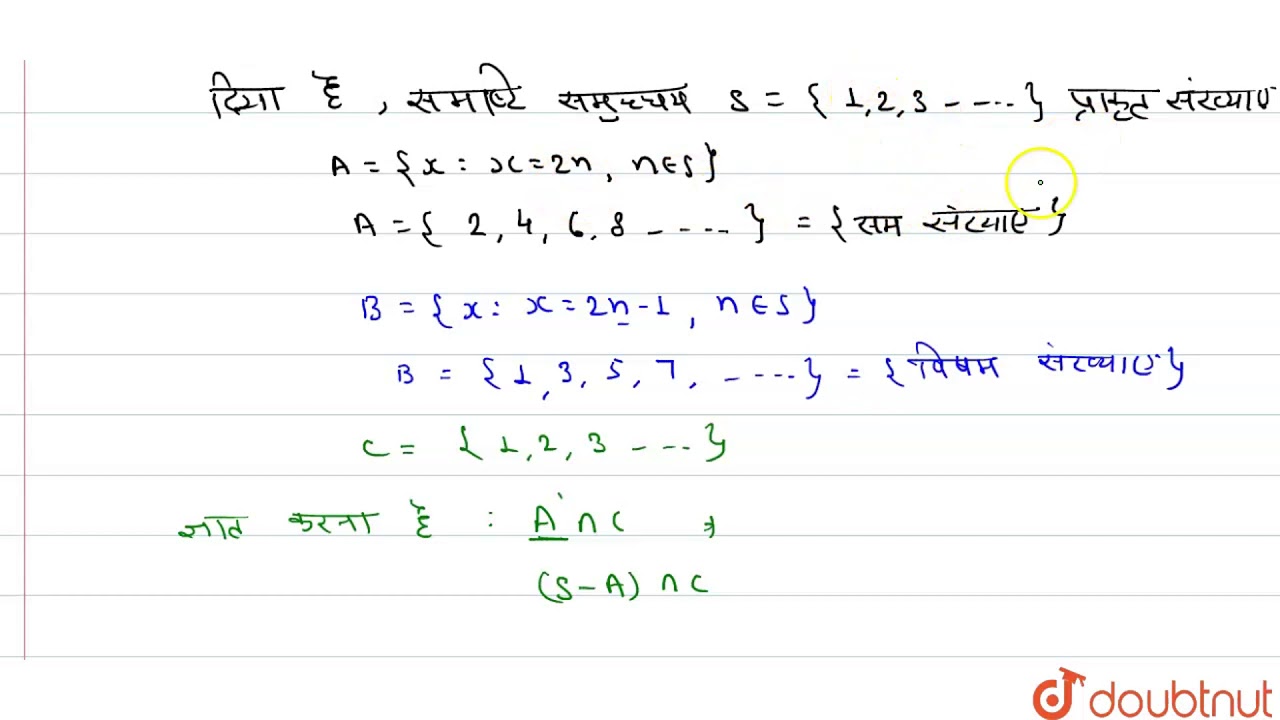 दिया है , समष्टि समुच्चय S = { 1, 2, 3 - - - - - } प्राकृत संख्याएँ
A = { x : x = 2n , n ∈ S }
A = { 2 , 4 , 6 , 8 - - - - - } = { सम संख्याएँ }
B = { x : x = 2n - 1 , n ∈ S }
B = { 1 , 3 , 5 , 7 , - - - - - } = { विषम संख्याएँ }
C = { 1 , 2 , 3 - - - - }
ज्ञात करना है : A' ∩ C ⇒
(S - A) ∩ C
doubtnut